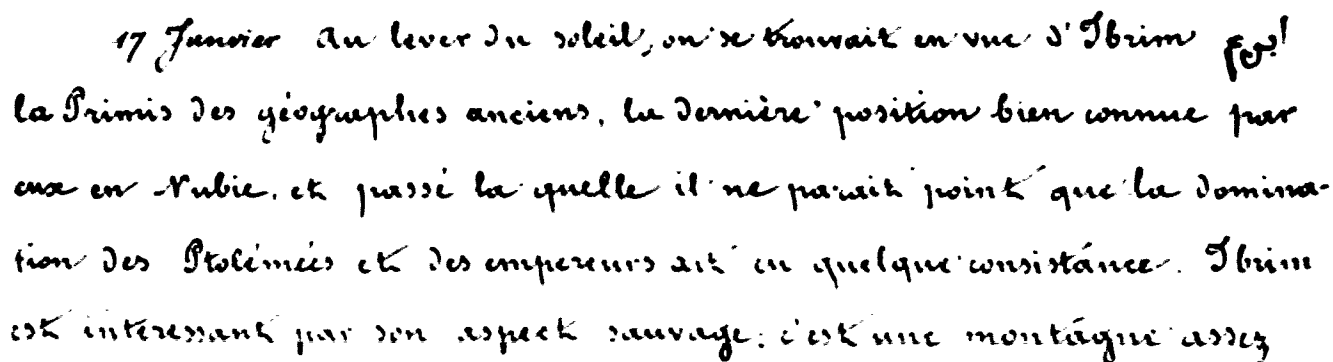 17 Janvier Au lever du soleil, on se trouvait en vue d'Ibrim
la Primis des géographes anciens, la dernière position bien connue par
eux en Nubie, et passé la quelle il ne parait point que la domina-
tion des Ptolémées et des empereurs ait eu quelque consistance. Ibrim
est intéressant par son aspect sauvage; c'est une montagne assez